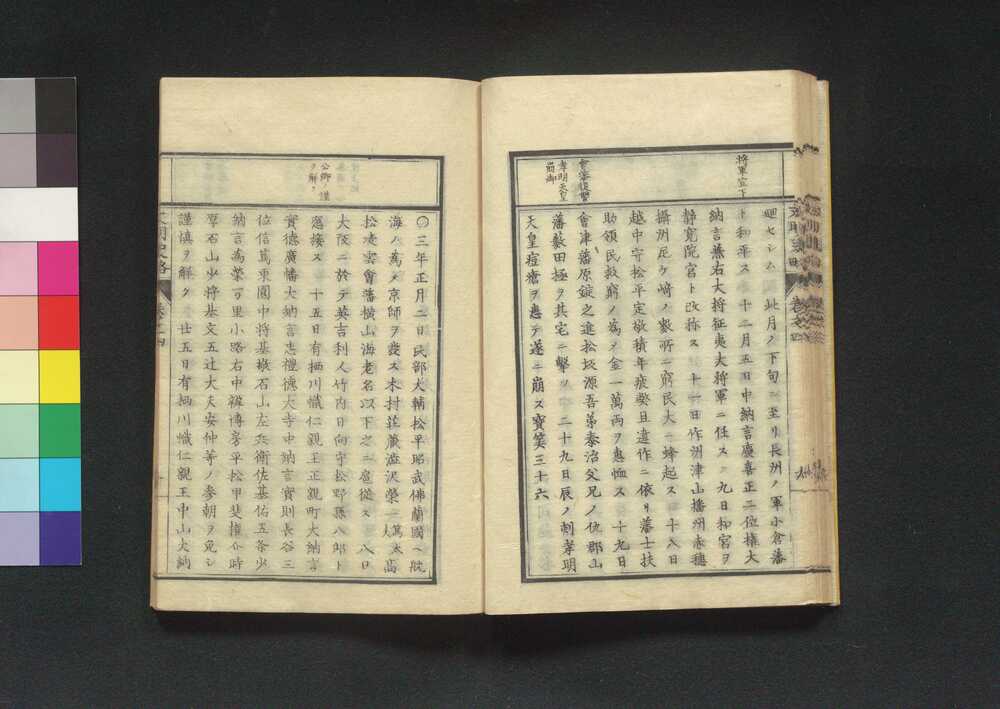 將軍宣下
會藩復讐
孝明天皇
崩御
廻セシム 此月ノ下旬ニ至リ長州ノ軍小倉藩
ト和平ス 十二月五日中納言慶喜正二位權大
納言兼右大將征夷大將軍ニ任ス 九日和宮ヲ
靜寛院宮ト改称ス 十一日作洲津山播州赤穗
攝州尼ケ﨑ノ數所ニ窮民大ニ蜂起ス 十八日
越中守松平定敬積年疲獘且違作ニ依リ藩士扶
助領民救窮ノ爲メ金一萬兩ヲ惠恤ス 十九日
會津藩原錠之進松坂源吾弟泰治父兄ノ仇郡山
藩藪田極ヲ其宅ニ擊ツ 二十九日辰ノ刺孝明
天皇痘瘡ヲ患テ遂ニ崩ス寶筭三十六
公卿ノ謹
ヲ解ク
〇三年正月二日民部大輔松平昭武佛蘭國ヘ航
海ノ爲メ京師ヲ發ス木村荘藏澁沢榮一萬太𣘺
松凌雲會藩横山海老名以下之ニ扈從ス 八日
大阪ニ於テ英吉利人竹内日向守松野孫八郎ト
應接ス 十五日有栖川幟仁親王正親町大納言
實德廣幡大納言忠禮德大寺中納言實則長谷三
位信篤東園中將基敬石山左兵衛佐基佑五条少
納言爲榮万里小路右中辨博房平松甲斐權介時
厚石山少將基文五辻大夫安仲等ノ參朝ヲ免シ
謹慎ヲ解ク 廿五日有栖川熾仁親王中山大納